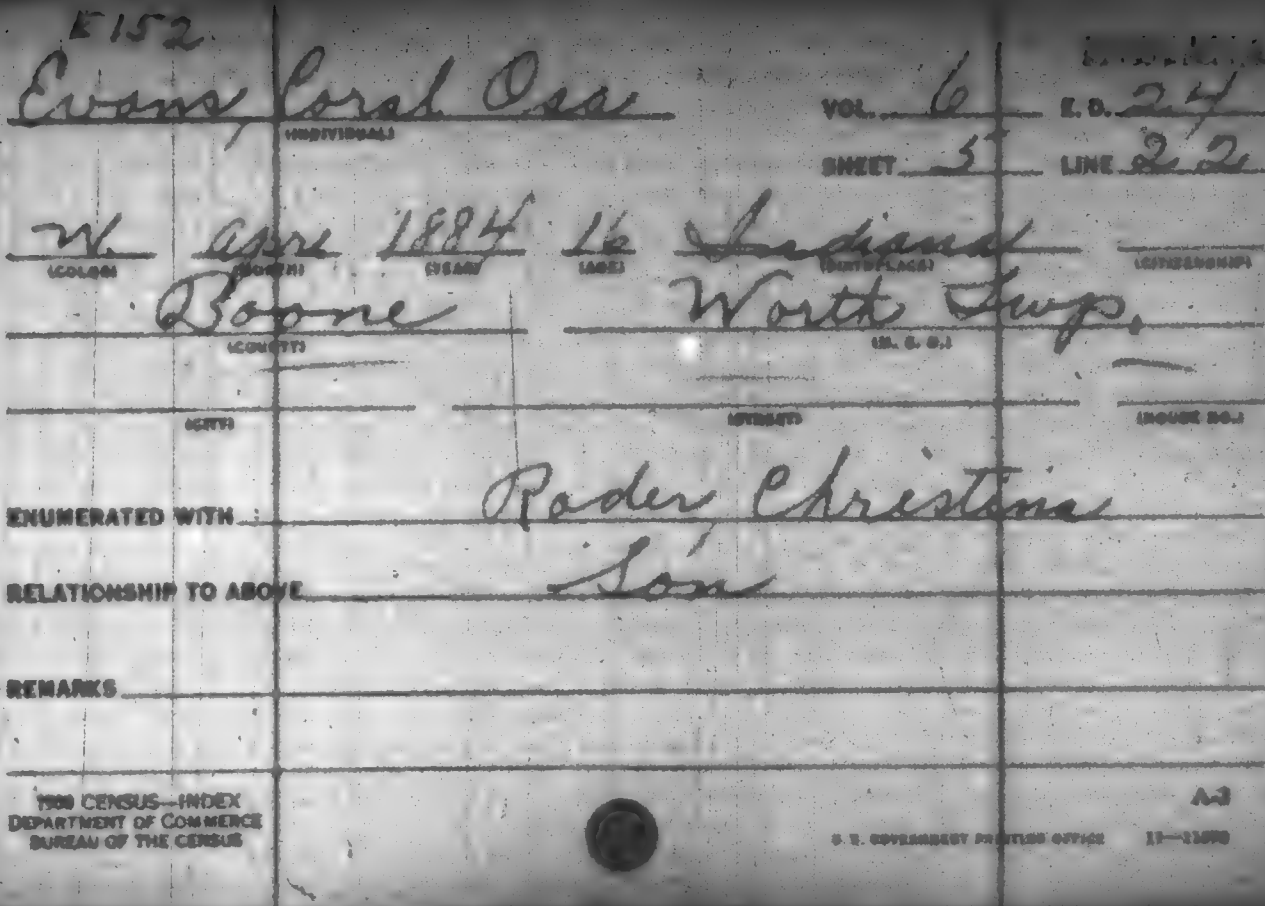 E152
Evans, Coral Osa
(INDIVIDUAL)
VOL. 6 E. D. 24
SHEET 5 LINE 22
W. Apri 1884 16 Indiana
(COLOR) (MONTH) (YEAR) (AGE) (BIRTHPLACE) (CITIZENSHIP)
Boone Worth Twp.
(COUNTY) (M. C. D.)
(CITY) (STREET) (HOUSE NO.)
ENUMERATED WITH Rader, Christina
RELATIONSHIP TO ABOVE Son
REMARKS
1900 CENSUS—INDEX
DEPARTMENT OF COMMERCE
BUREAU OF THE CENSUS
A-3
U. S. GOVERNMENT PRINTING OFFICE